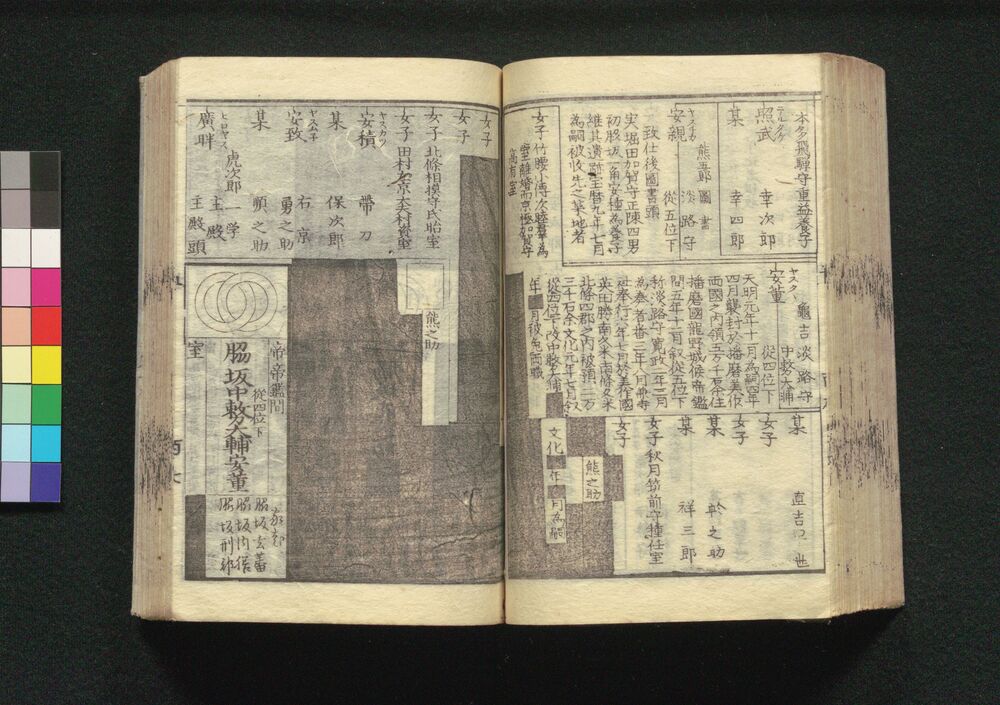 本多飛騨守重益養子
テルタケ
照武 幸次郎
某 幸四郎
熊五郎
圖書
安親 淡路守
從五位下
致仕後圖書頭
実堀田加賀守正陳四男
初脇坂一角安種為養子
維其遺跡宝暦九年七月
為嗣被收先之菜地者
女子 竹腰小傳次睦群為
室離婚而京極加賀守
高有室
ヤスタヽ
安董 龜吉 淡路守
中務大輔
從四位下
天明元年十一月為嗣四年
四月襲封於播磨美作
両國之内領五万千石余住
播磨國龍野城候帝鑑
間五年十二月叙從五位下
称淡路守寛政二年三月
英田勝南久米南條久米
北條四郡之内被領一万
三千石余文化元年七月叙
從四位下改中務大輔
年 月被免両職
某 直吉
女子
女子
某 幹之助
某 祥三郎
女子 秋月筑前守種任室
女子
熊之助
文化 年 月為嗣
女子
女子
女子 北條相摸守氏貽室
女子 田村左京大夫村資室
ヤスカツ
安積 帶刀
某 保次郎
右京
ヤスムネ
安致 勇之助
某 順之助
ヒロヤス
廣胖 虎次郎
一学
主殿
主殿頭
熊之助
帝鑑間
從四位下
脇坂中務大輔安董
室
家老
脇坂玄蕃
脇坂内匠
脇坂刑部